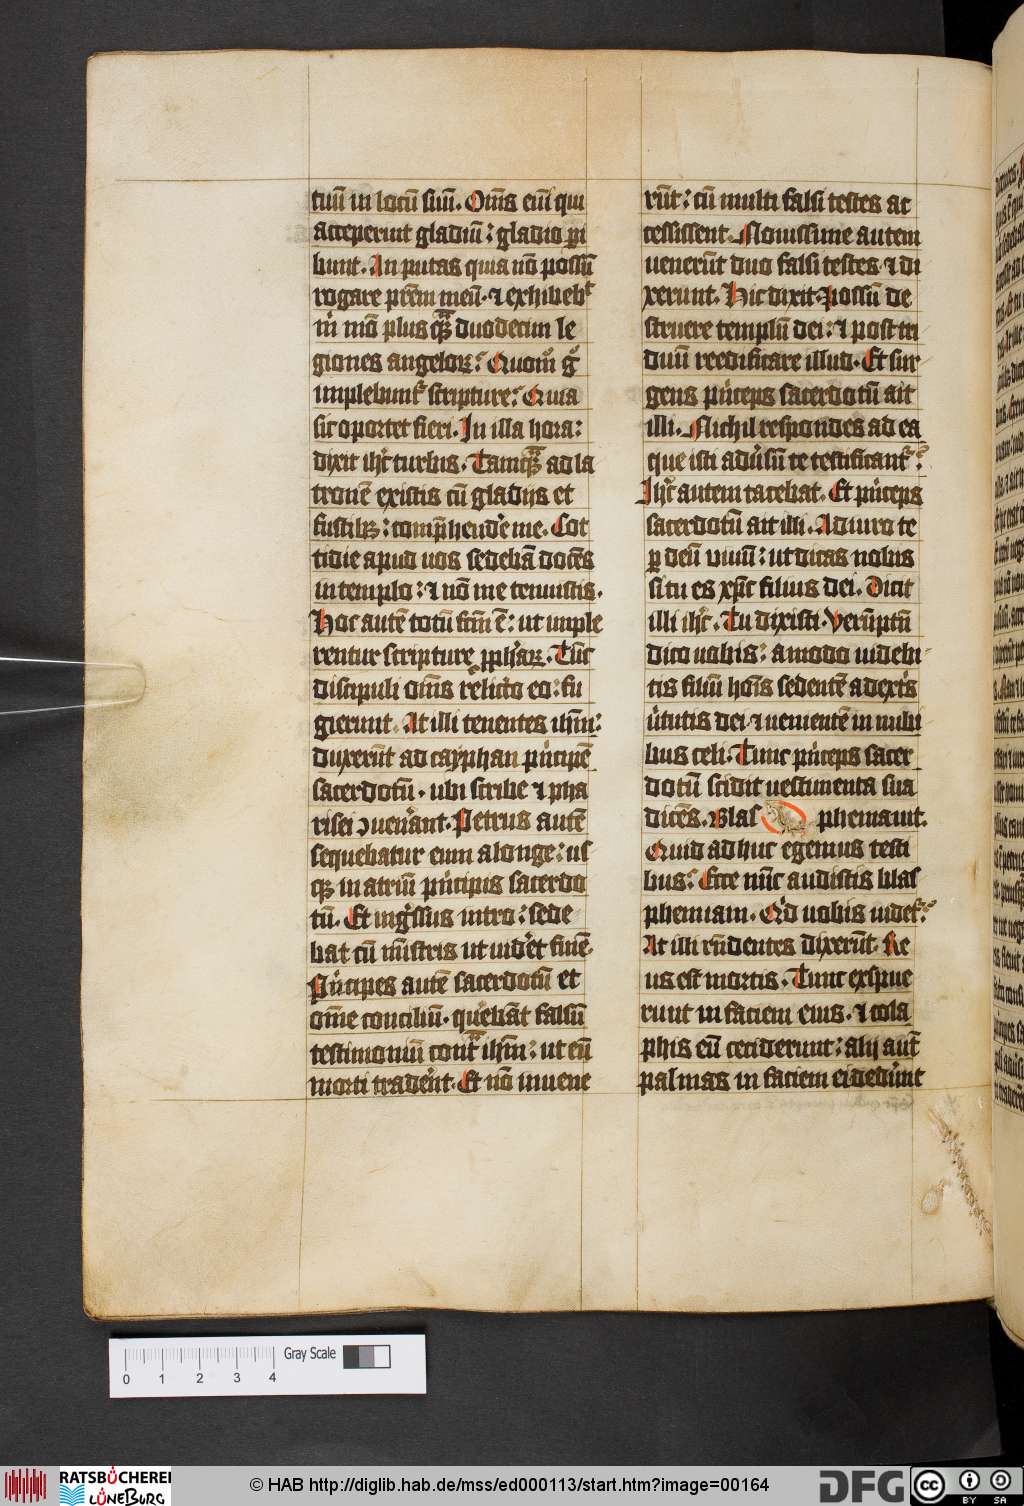 tuū in locū suū. Om̄s enī qui
acceperint gladiū: gladio ꝑi
bunt. An putas quia nō possū
rogare prēm meū. ⁊ exhibebt᷑
m̄ mō plusqꝫ duodecim le
giones angeloꝝ: Quom̊ gͦ
implebunt᷑ scripture: Quia
sic oportet fieri. In illa hora:
dixit ihc̄ turbis. Tamqꝫ ad la
tronē existis cū gladijs et
fustibꝫ: comp̄hend'e me. Cot
tidie apud uos sedebā docēs
in templo: ⁊ nō me tenuistis.
Hoc autē totū fc̄m ē: ut imple
rentur scripture ꝓph'aꝝ. Tūc
discipuli om̄s relicto eo: fu
gierunt. At illi tenentes ihm̄:
duxerūt ad cayphan pͥncipē
sacerdotū. ubi scribe ⁊ pha
risei ꝯuen'ant. Petrus autē
sequebatur eum a longe: us
qꝫ in atriū pͥncipis sacerdo
tū. Et ingͤssus intro: sede
bat cū mīstris ut uid'et finē.
Pͥncipes autē sacerdotū et
om̄e conciliū. querebāt falsū
testimoniū contᷓ ihm̄: ut eū
morti trad'ēnt. Et nō inuene
rūt: cū multi falsi testes ac
cessissent. Nouissime autem
uenerūt duo falsi testes. ⁊ di
xerunt. Hic dixit. Possū de
struere templū dei: ⁊ post tri
duū reedificare illud. Et sur
gens pͥnceps sacerdotū ait
illi. Nichil respondes ad ea
que isti adūsū te testificant᷑:
Ihc̄ autem tacebat. Et pͥnceps
sacerdotū ait illi. Adiuro te
ꝑ deū uiuū: ut dicas nobis
si tu es xp̄c filius dei. Dicit
illi ihc̄. Tu dixisti. Verūptn̄
dico uobis: amodo uidebi
tis filiū hoīs sedentē a dextͥs
uͥtutis dei ⁊ uenientē in nubi
bus celi. Tunc pͥnceps sacer
dotū scidit uestimenta sua
dicēs. Blas phemauit.
Quid adhuc egemus testi
bus: Ecce nūc audistis blas
phemiam. Qͥd uobis uidet᷑:
At illi rn̄dentes dixerūt. Re
us est mortis. Tunc exspue
runt in faciem eius. ⁊ cola
phis eū ceciderunt: alij aut̄
palmas in faciem ei dedūnt
0 1 2 3 4
Gray Scale
RATSBÜCHEREI
LÜNEBURG
© HAB http://diglib.hab.de/mss/ed000113/start.htm?image=00164
DFG
cc
BY SA